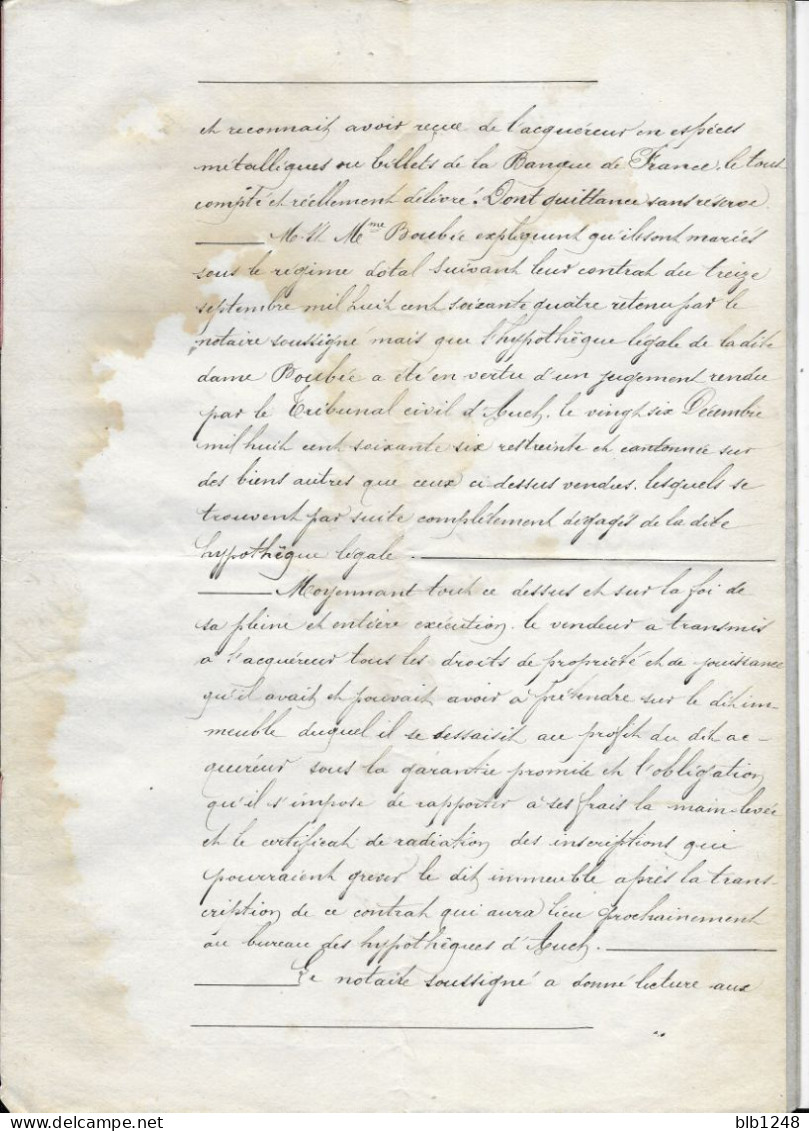 et reconnait avoir reçue de l'acquéreur en espèces
métalliques ou billets de la Banque de France, le tout
compté et réellement délivré. Dont quittance sans réserve.
M. et Mme Boubée expliquent qu'ils sont mariés
sous le régime dotal suivant leur contrat du treize
septembre mil huit cent soixante quatre retenu par le
notaire soussigné mais que l'hypothèque légale de la dite
dame Boubée a été en vertu d'un jugement rendu
par le Tribunal civil d'Auch, le vingt six Décembre
mil huit cent soixante six restreinte et cantonnée sur
des biens autres que ceux ci-dessus vendus, lesquels se
trouvent par suite complètement dégagés de la dite
hypothèque légale.
Moyennant tout ce dessus et sur la foi de
sa pleine et entière exécution, le vendeur a transmis
à l'acquéreur tous les droits de propriété et de jouissance
qu'il avait et pouvait avoir à prétendre sur le dit im-
meuble duquel il se dessaisit au profit du dit ac-
quéreur sous la garantie promise et l'obligation
qu'il s'impose de rapporter à ses frais la main-levée
et le certificat de radiation des inscriptions qui
pourraient grever le dit immeuble après la trans-
cription de ce contrat qui aura lieu prochainement
au bureau des hypothèques d'Auch.
Le notaire soussigné a donné lecture aux
blb1248